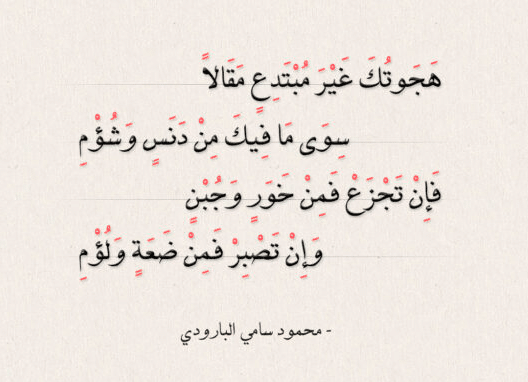 هَجَوتُكَ غَيْرَ مُبْتَدِعٍ مَقَالاً
سِوَى مَا فِيكَ مِنْ دَنَسٍ وَشُؤْمِ
فَإِنْ تَجْزَعْ فَمِنْ خَوَرٍ وَجُبْنٍ
وَإِنْ تَصْبِرْ فَمِنْ ضَعَةٍ وَلُؤْمِ
- محمود سامي البارودي